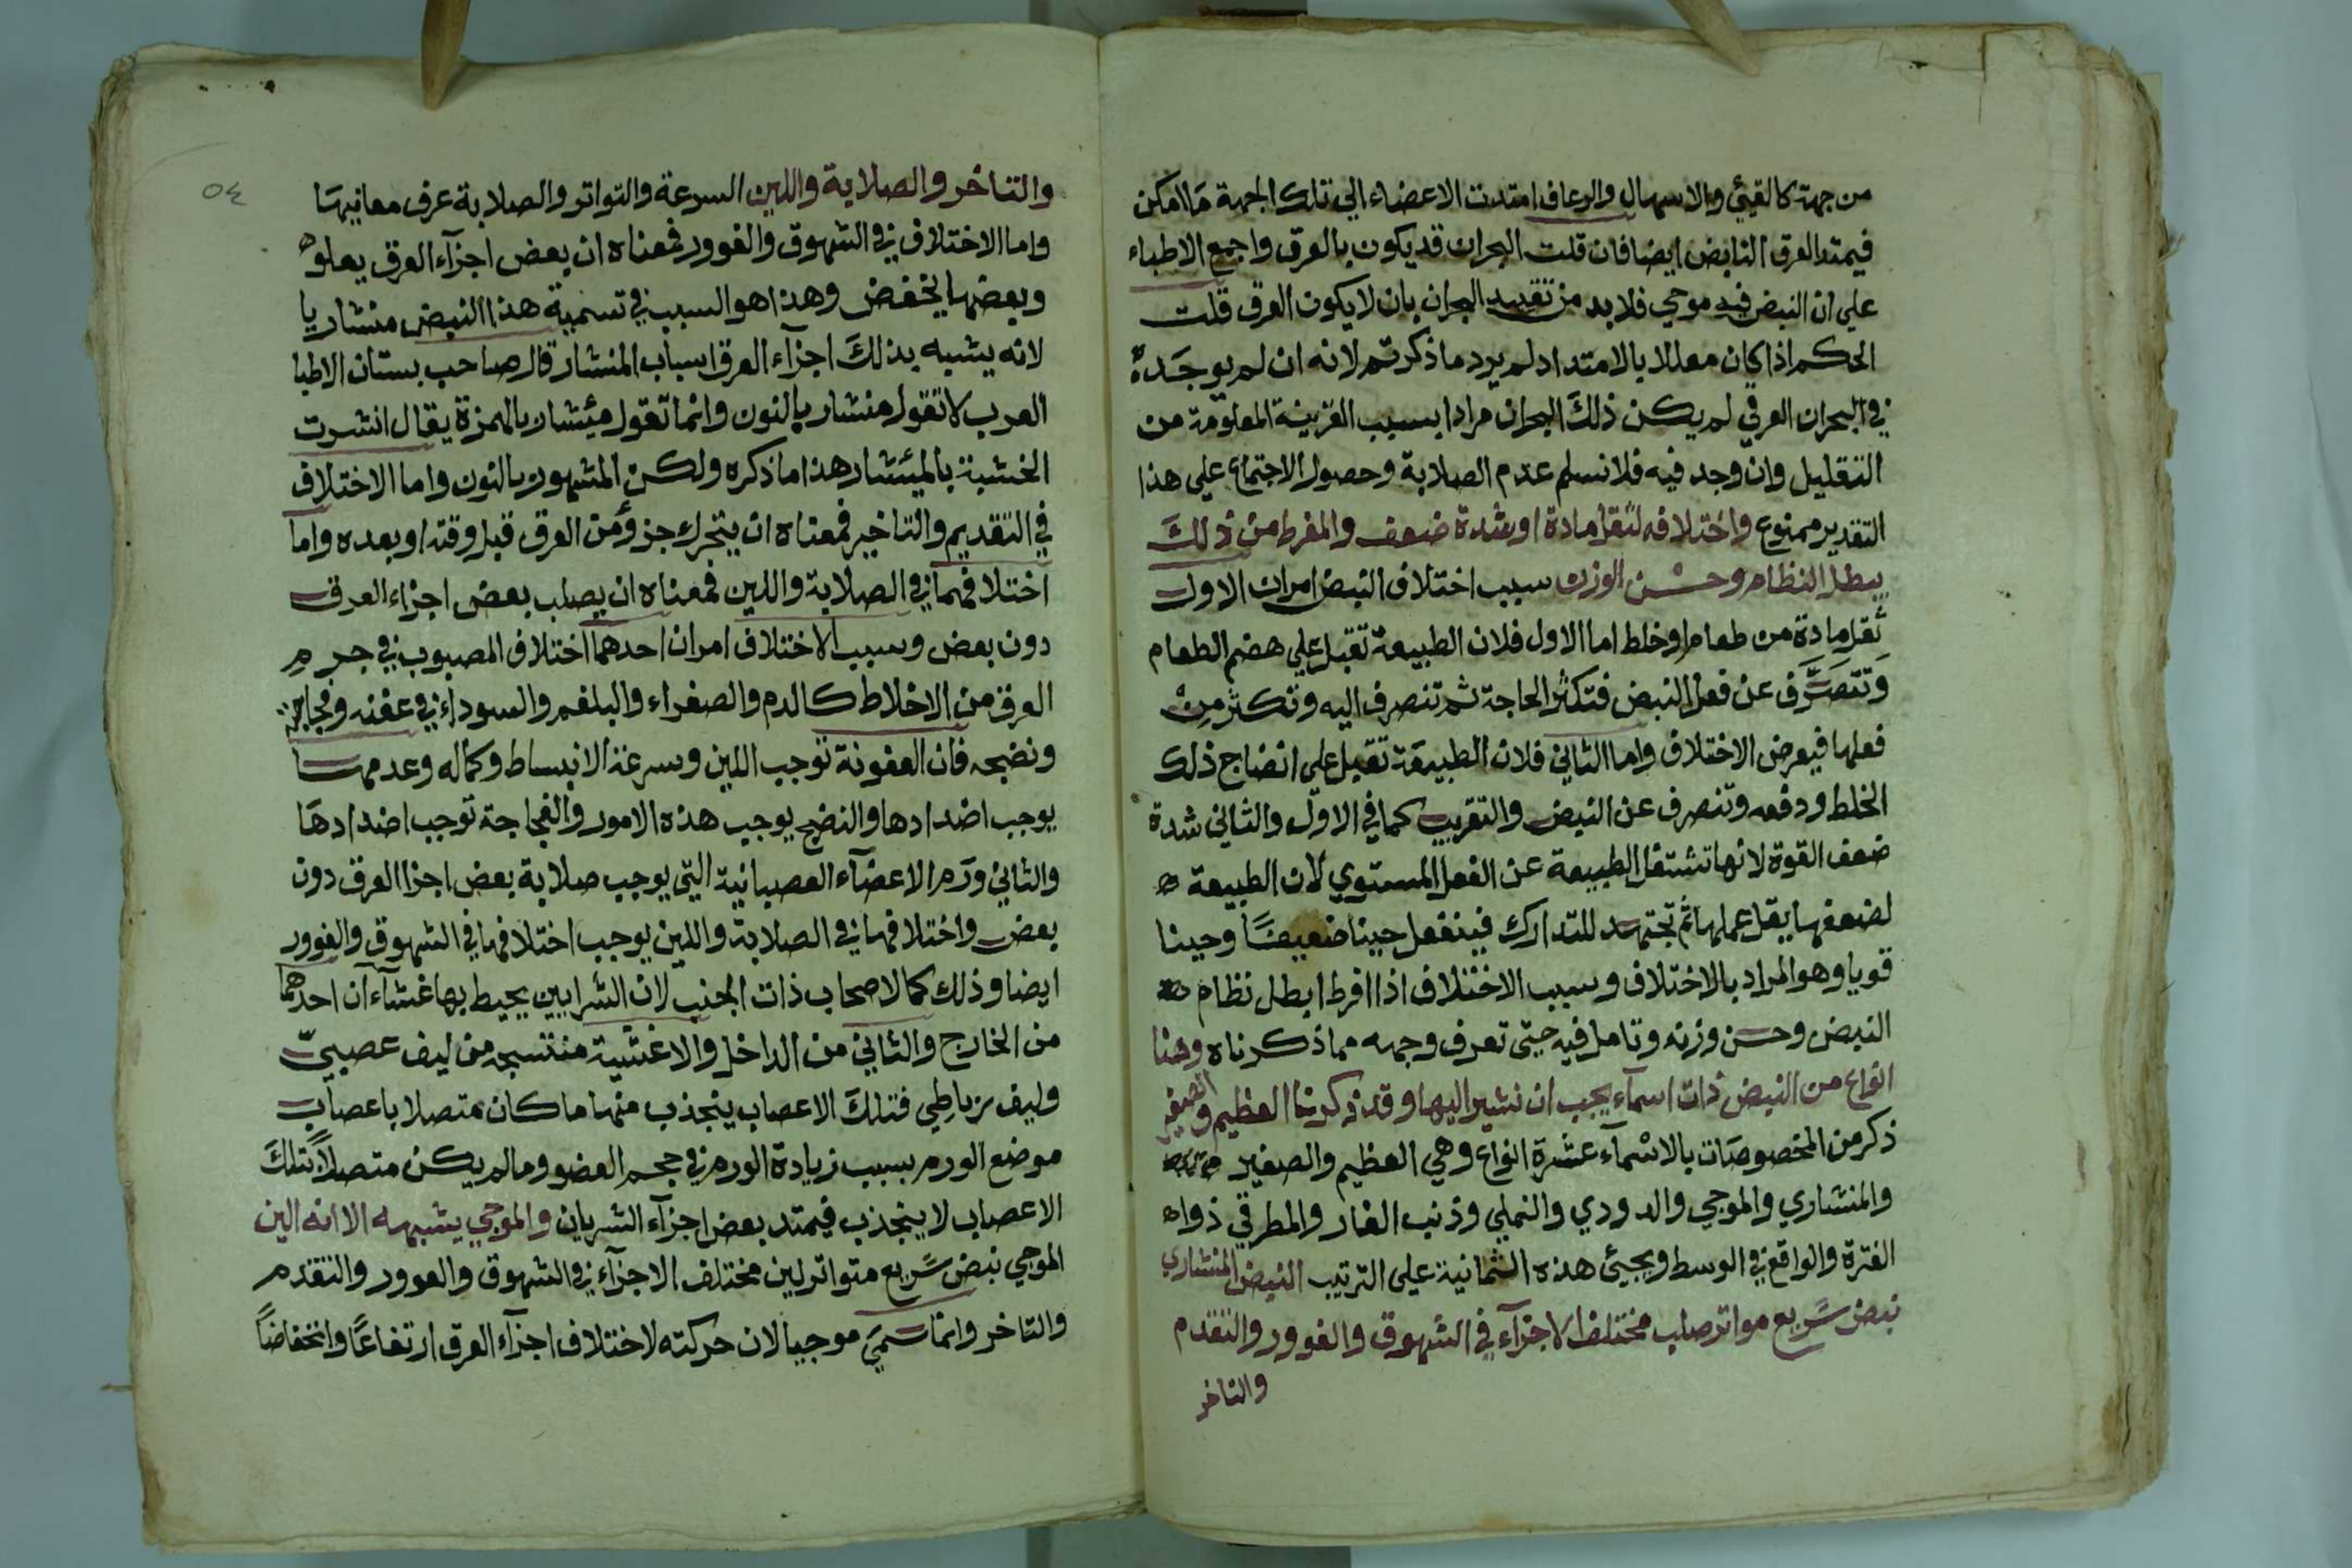 من جهة كالقيئ والاسهال والرعاف امتدت الاعضاء الي تلك الجهة ما امكن
فيمتد العرق النابض ايضا فان قلت البحران قد يكون بالعرق واجمع الاطباء
علي ان النبض فيه موجي فلا بد من تقييد البحران بان لا يكون العرق قلت
الحكم اذا كان معللا بالامتداد لم يرد ما ذكرتم لانه ان لم يوجد
في البحران العرقي لم يكن ذلك البحران مرادا بسبب القرينة المعلومة من
التعليل وان وجد فيه فلا نسلم عدم الصلابة وحصول الاجتماع علي هذا
التقدير ممنوع واختلافه لثقل مادة او شدة ضعف والمفرط من ذلك
يبطل النظام وحسن الوزن سبب اختلاف النبض امران الاول
ثقل مادة من طعام او خلط اما الاول فلان الطبيعة تقبل علي هضم الطعام
وتتصرف عن فعل النبض فتكثر الحاجة ثم تنصرف اليه وتكثر من
فعلها فيعرض الاختلاف واما الثاني فلان الطبيعة تقبل علي انضاج ذلك
الخلط ودفعه وتنصرف عن النبض والتقريب كما في الاول والثاني شدة
ضعف القوة لانها تشتغل الطبيعة عن الفعل المستوي لان الطبيعة
لضعفها يقل عملها ثم تجتهد للتدارك فينفعل حينا ضعيفا وحينا
قويا وهو المراد بالاختلاف وسبب الاختلاف اذا افرط ابطل نظام
النبض وحسن وزنه وتامل فيه حتى تعرف وجهه مما ذكرناه وهنا
انواع من النبض ذات اسماء يجب ان نشير اليها وقد ذكرنا العظيم والصغير
ذكر من المخصوصات بالاسماء عشرة انواع وهي العظيم والصغير
والمنشاري والموجي والدودي والنملي وذنب الفار والمطرقي ذوا
الفترة والواقع في الوسط ويجيئ هذه الثمانية على الترتيب النبض المنشاري
نبض سريع مواتر صلب مختلف الاجزآء في الشهوق والغوور والتقدم
والتاخر
٥٤
والتاخر والصلابة واللين السرعة والتواتر والصلابة عرف معانيها
واما الاختلاف في الشهوق والغوور فمعناه ان بعض اجزآء العرق يعلو
وبعضها ينخفض وهذا هو السبب في تسمية هذا النبض منشاريا
لانه يشبه بذلك اجزآء العرق اسباب المنشار قال صاحب بستان الاطبا
العرب لا تقول منشار بالنون وانما تقول مئشار بالهمزة يقال انشرت
الخشبة بالمئشار هذا ما ذكره ولكن المشهور بالنون واما الاختلاف
في التقديم والتاخير فمعناه ان يتحرك جزؤ من العرق قبل وقته او بعده واما
اختلافهما في الصلابة واللين فمعناه ان يصلب بعض اجزاء العرق
دون بعض وسبب الاختلاف امران احدهما اختلاف المصبوب في جرم
العرق من الاخلاط كالدم والصفراء والبلغم والسوداء في عفنه وفجاجته
ونضجه فان العفونة توجب اللين وسرعة الانبساط وكماله وعدمها
يوجب اضدادها والنضج يوجب هذه الامور والفجاجة توجب اضدادها
والثاني ورم الاعضآء العصبانية التي يوجب صلابة بعض اجزا العرق دون
بعض واختلافها في الصلابة واللين يوجب اختلافها في الشهوق والغوور
ايضا وذلك كما لاصحاب ذات الجنب لان الشرايين يحيط بها غشآء آن احدهما
من الخارج والثاني من الداخل والاغشية منتسجه من ليف عصبي
وليف رباطي فتلك الاعصاب ينجذب منها ما كان متصلا باعصاب
موضع الورم بسبب زيادة الورم في حجم العضو وما لم يكن متصلا بتلك
الاعصاب لا ينجذب فيمتد بعض اجزآء الشريان والموجي يشبهه الا انه الين
الموجي نبض سريع متواتر لين مختلف الاجزآء في الشهوق والغوور والتقدم
والتاخر وانما سمي موجيا لان حركته لاختلاف اجزآء العرق ارتفاعا وانخفاضا